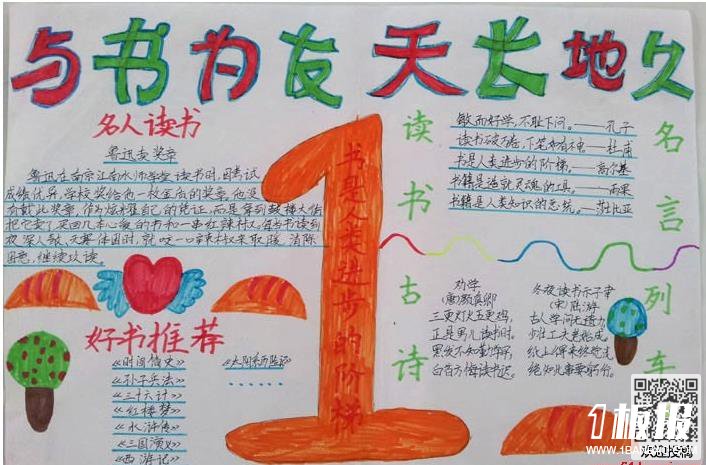 与书为友 天长地久
名人读书
鲁迅卖奖章
鲁迅在南京江南水师学堂读书时,因考试
成绩优异,学校奖给他一枚金质的奖章,他没
有戴此奖章,作为炫耀自己的凭证,而是拿到鼓楼大街
把它卖了,买回几本心爱的书和一串红辣椒,每当书读到
夜深人静、天寒体困时,就咬一口辣椒来取暖,清除
困意,继续攻读。
好书推荐
《时间简史》
《孙子兵法》
《三十六计》
《红楼梦》
《水浒传》
《三国演义》
《西游记》
《太阳系历险记》
......
1
书是人类进步的阶梯
读书古诗
劝学
(唐)颜真卿
三更灯火五更鸡,
正是男儿读书时。
黑发不知勤学早,
白首方悔读书迟。
冬夜读书示子聿
(宋)陆游
古人学问无遗力
少壮工夫老始成。
纸上得来终觉浅
绝知此事要躬行。
名言列车
敏而好学,不耻下问。——孔子
读书破万卷,下笔如有神——杜甫
书是人类进步的阶梯。——高尔基
书籍是造就灵魂的工具。——雨果
书籍是人类知识的总统。——莎士比亚
1板报
欢迎投稿